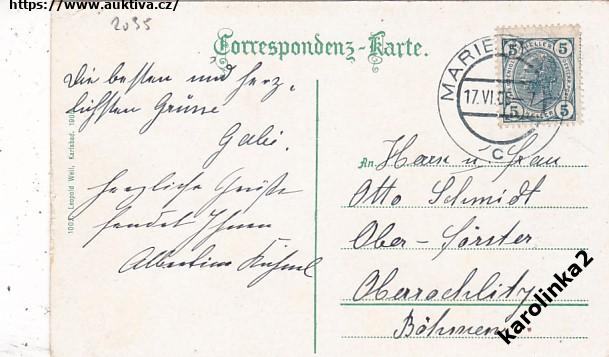 https://www.auktiva.cz/
2035
Correspondenz-Karte.
Die besten und herz-
lichsten Grüsse
Gabi.
herzliche Grüße
sendet Ihnen
Albertine
1002 Leopold Weil, Karlsbad. 190
MARIE
17.VI.
C
5 5
5 5
An Herrn u. Frau
Otto Schmidt
Ober-Förster
Oberrochlitz
Böhmen
karolinka2